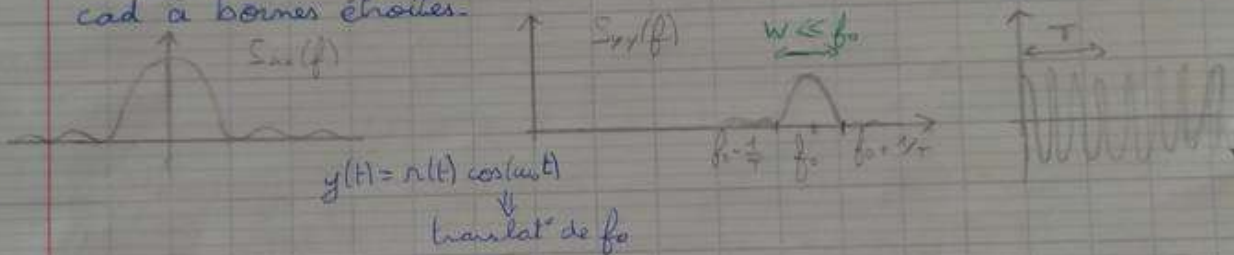 cad à bornes étroites.
Sxx(f)
Syy(f)
W << f₀
T
f₀ - 1/T f₀ f₀ + 1/T
y(t) = x(t) cos(ω₀t)
⇓
translat° de f₀